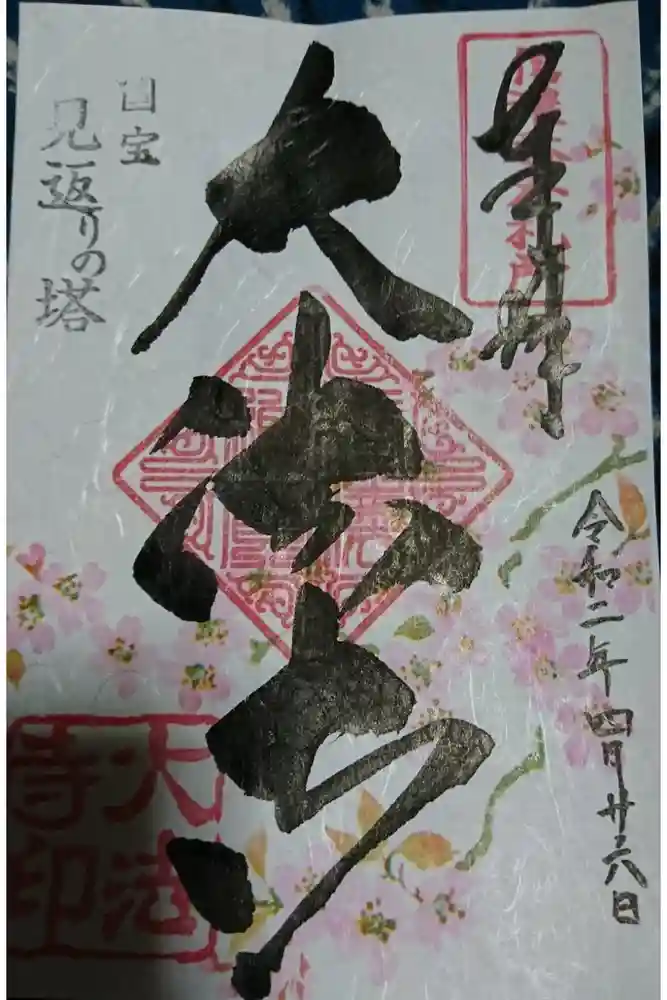 奉拝
令和二年四月廿六日
大法寺
国宝
見返りの塔
大法
寺印